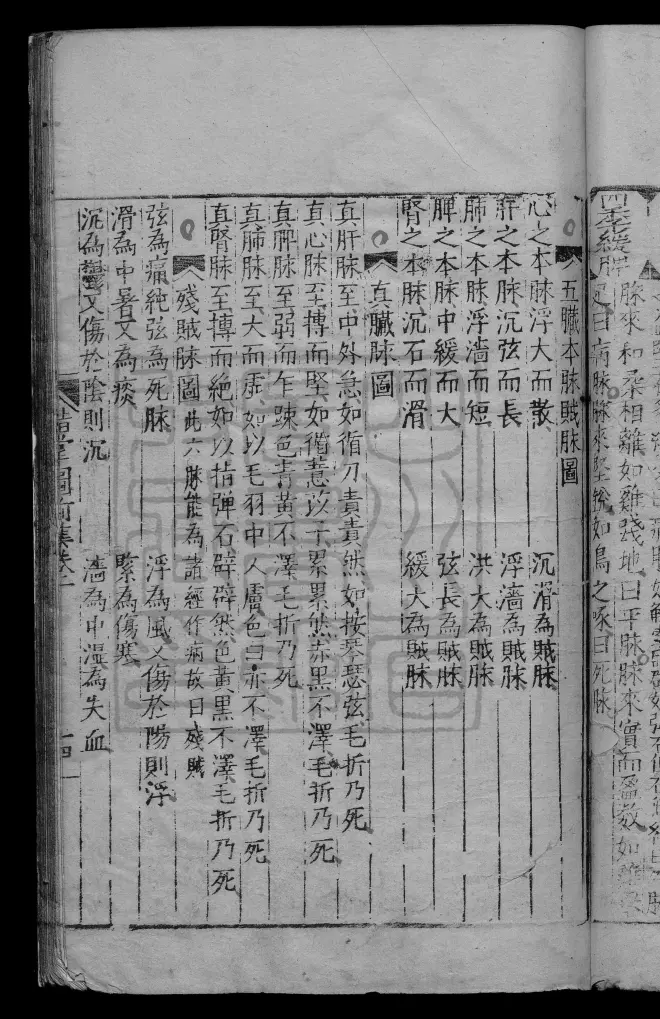 四季緩脾
脉來和柔相離如雞踐地曰平脉脉來實而盈数如
曰病脉脉來堅銳如鳥之啄曰死脉
五臟本脉賊脉圖
心之本脉浮大而散 沉滑為賊脉
肝之本脉沉弦而長 浮濇為賊脉
肺之本脉浮濇而短 洪大為賊脉
脾之本脉中緩而大 弦長為賊脉
腎之本脉沉石而滑 緩大為賊脉
真臟脉圖
真肝脉至中外急如循刀責責然如按琴瑟弦毛折乃死
真心脉至摶而堅如循薏苡子累累然赤黑不澤毛折乃死
真脾脉至弱而乍踈色青黃不澤毛折乃死
真肺脉至大而虛如以毛羽中人膚色白赤不澤毛折乃死
真腎脉至摶而絕如以指弹石辟辟然色黃黑不澤毛折乃死
殘賊脉圖 此六脉能為諸經作病故曰殘賊
弦為痛純弦為死脉 浮為風又傷於陽則浮
滑為中暑又為痰 緊為傷寒
沉為鬱又傷於陰則沉 濇為中湿為失血
圖 集卷二
十四